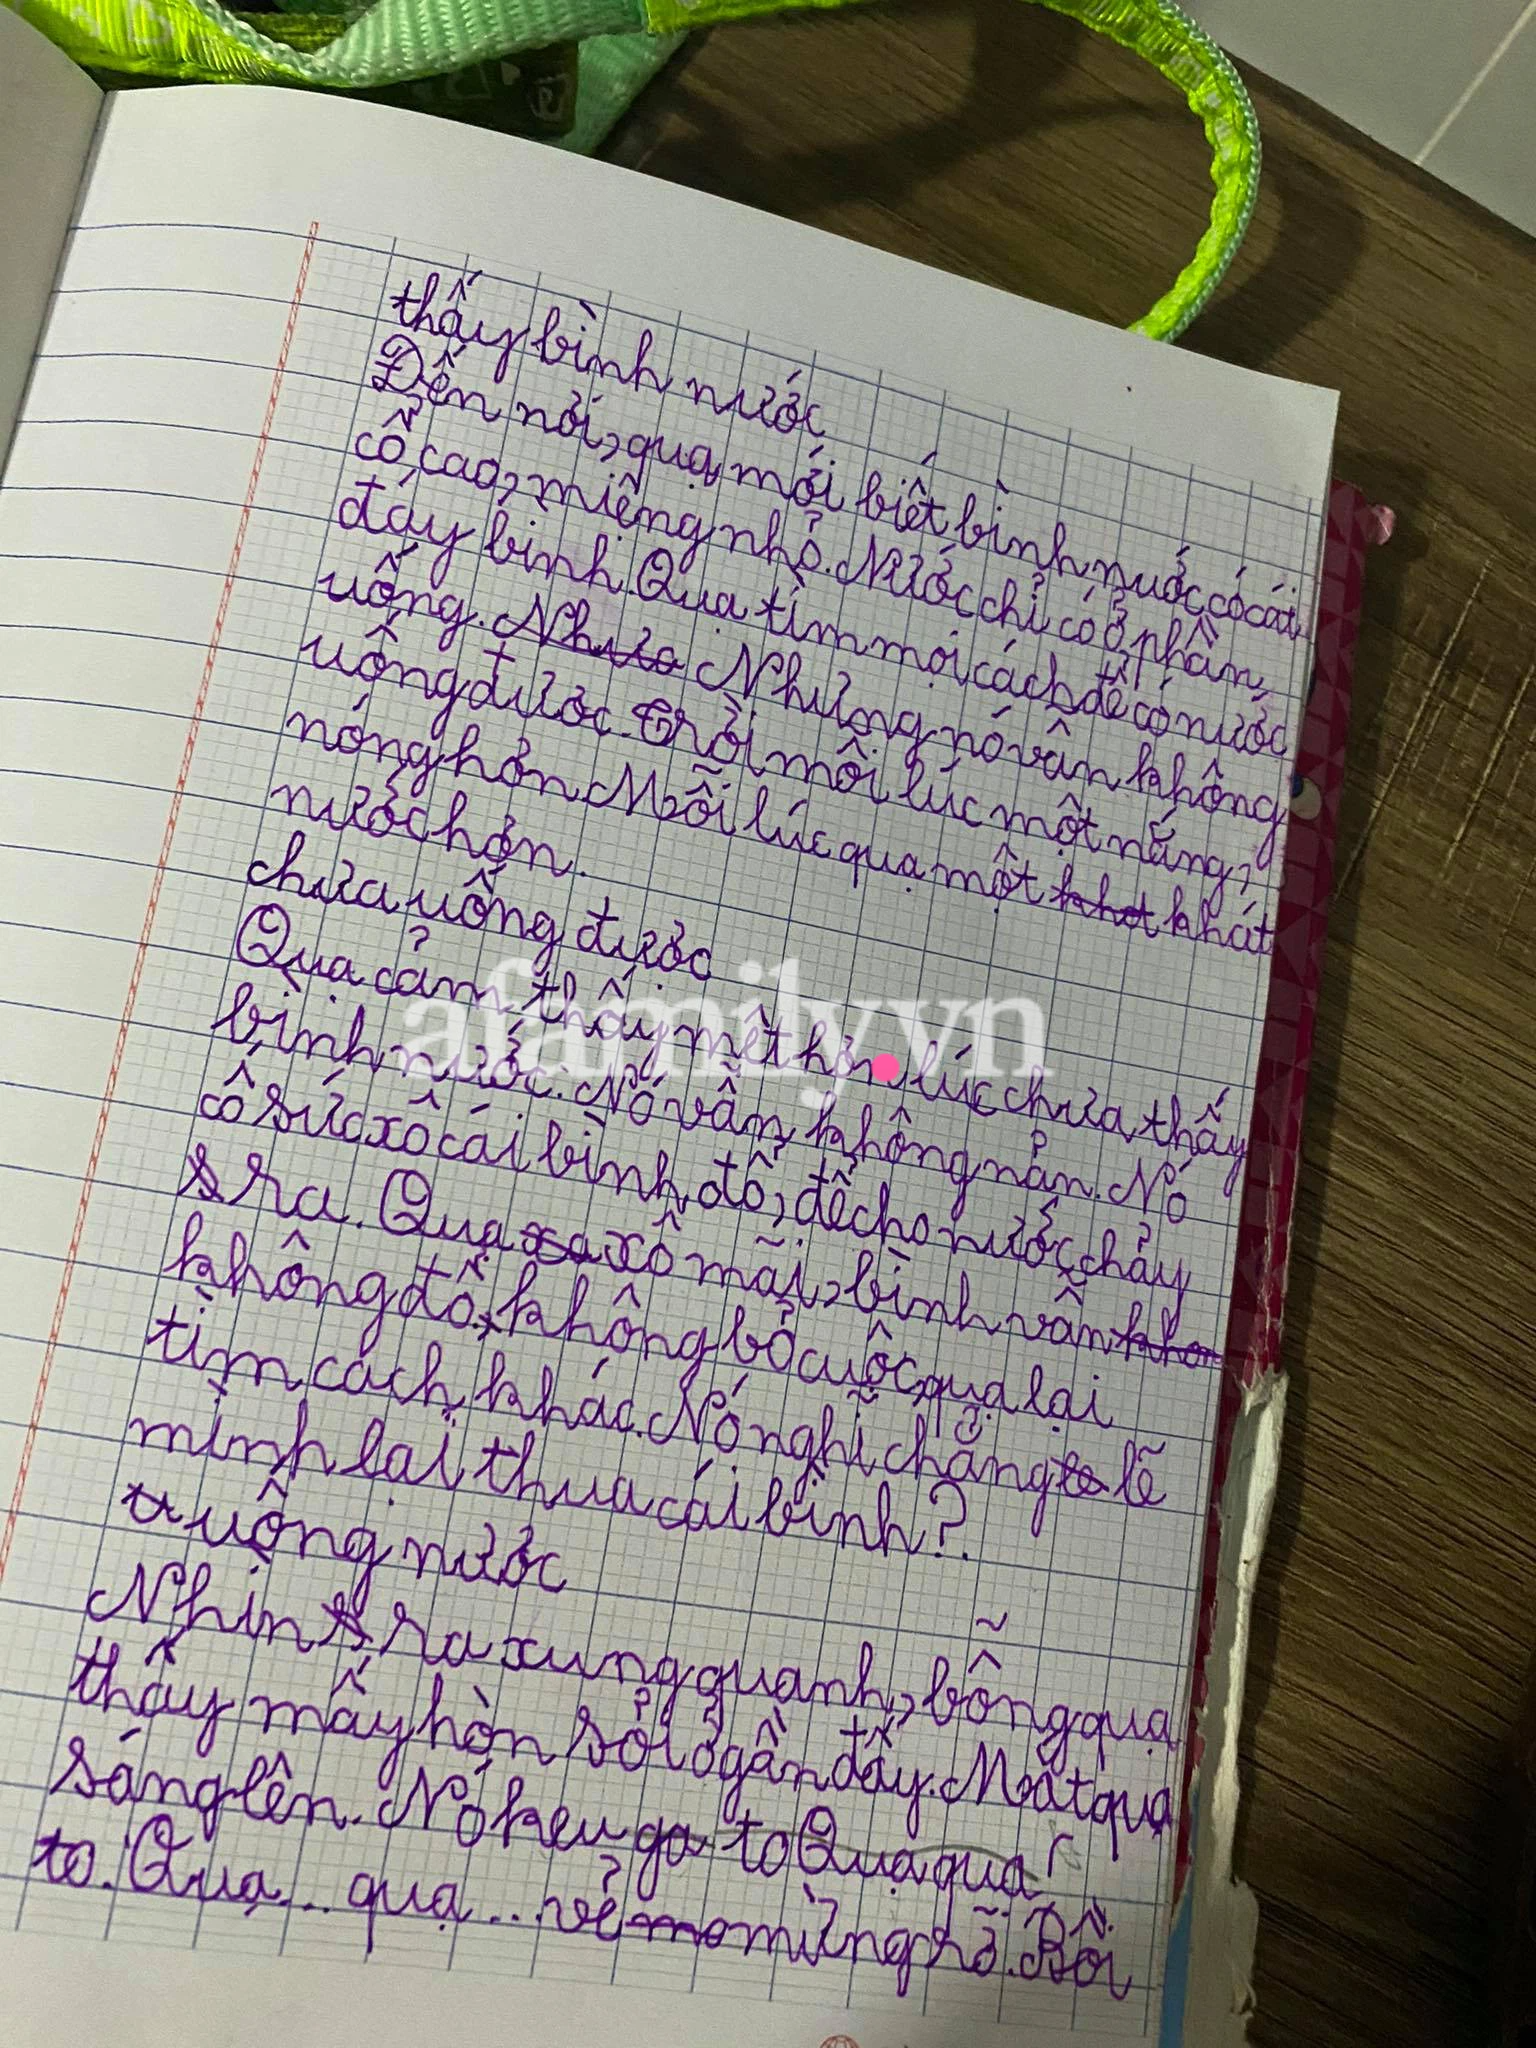 thấy bình nước
Đến nơi, quạ mới biết bình nước có cái
cổ cao, miệng nhỏ. Nước chỉ có ở phần
đáy bình. Quạ tìm mọi cách để có nước
uống. Nhưng nó vẫn không
uống được. Trời mỗi lúc một nắng,
nóng hơn. Mỗi lúc quạ một khát
nước hơn.
chưa uống được
Quạ cảm thấy mệt hơn lúc chưa thấy
bình nước. Nó vẫn không nản. Nó
cố sức xô cái bình đổ, để cho nước chảy
ra. Quạ xô mãi, bình vẫn
không đổ, không bỏ cuộc, quạ lại
tìm cách khác. Nó nghĩ chẳng lẽ
mình lại thua cái bình?.
uống nước
Nhìn ra xung quanh, bỗng quạ
thấy mấy hòn sỏi ở gần đấy. Mắt quạ
sáng lên. Nó kêu to Quạ quạ!
to. Quạ... quạ... vẻ mừng rỡ. Rồi
afamily.vn